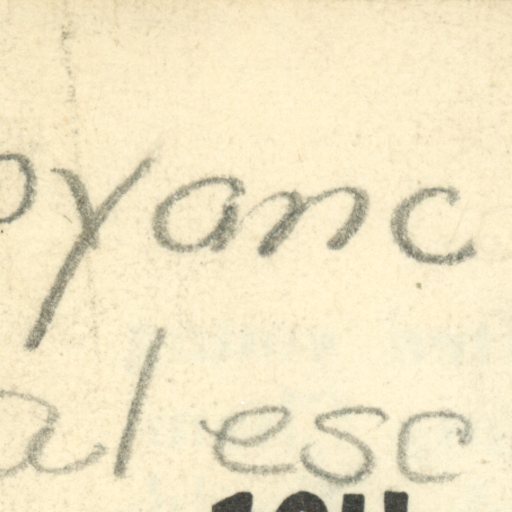 oyanc
al esc